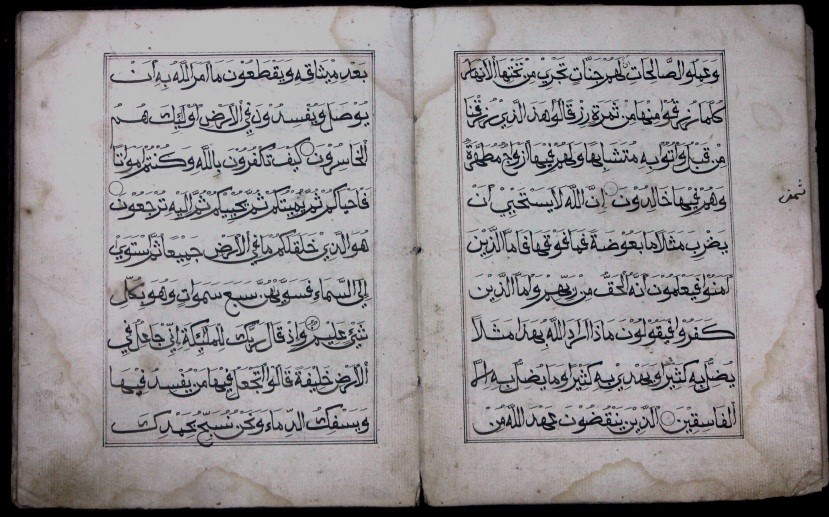 وعملوا الصالحات لهم جنات تجري من تحتها الانهار
كلما رزقوا منها من ثمرة رزقا قالوا هذا الذي رزقنا
من قبل واتوا به متشابها ولهم فيها ازواج مطهرة
وهم فيها خالدون ان الله لا يستحيي ان
يضرب مثلا ما بعوضة فما فوقها فاما الذين
امنوا فيعلمون انه الحق من ربهم واما الذين
كفروا فيقولون ماذا اراد الله بهذا مثلا
يضل به كثيرا ويهدي به كثيرا وما يضل به الا
الفاسقين الذين ينقضون عهد الله من
بعد ميثاقه ويقطعون ما امر الله به ان
يوصل ويفسدون في الارض اولئك هم
الخاسرون كيف تكفرون بالله وكنتم امواتا
فاحياكم ثم يميتكم ثم يحييكم ثم اليه ترجعون
هو الذي خلق لكم ما في الارض جميعا ثم استوى
الى السماء فسويهن سبع سموات وهو بكل
شيئ عليم واذ قال ربك للملئكة اني جاعل في
الارض خليفة قالوا اتجعل فيها من يفسد فيها
ويسفك الدماء ونحن نسبح بحمدك